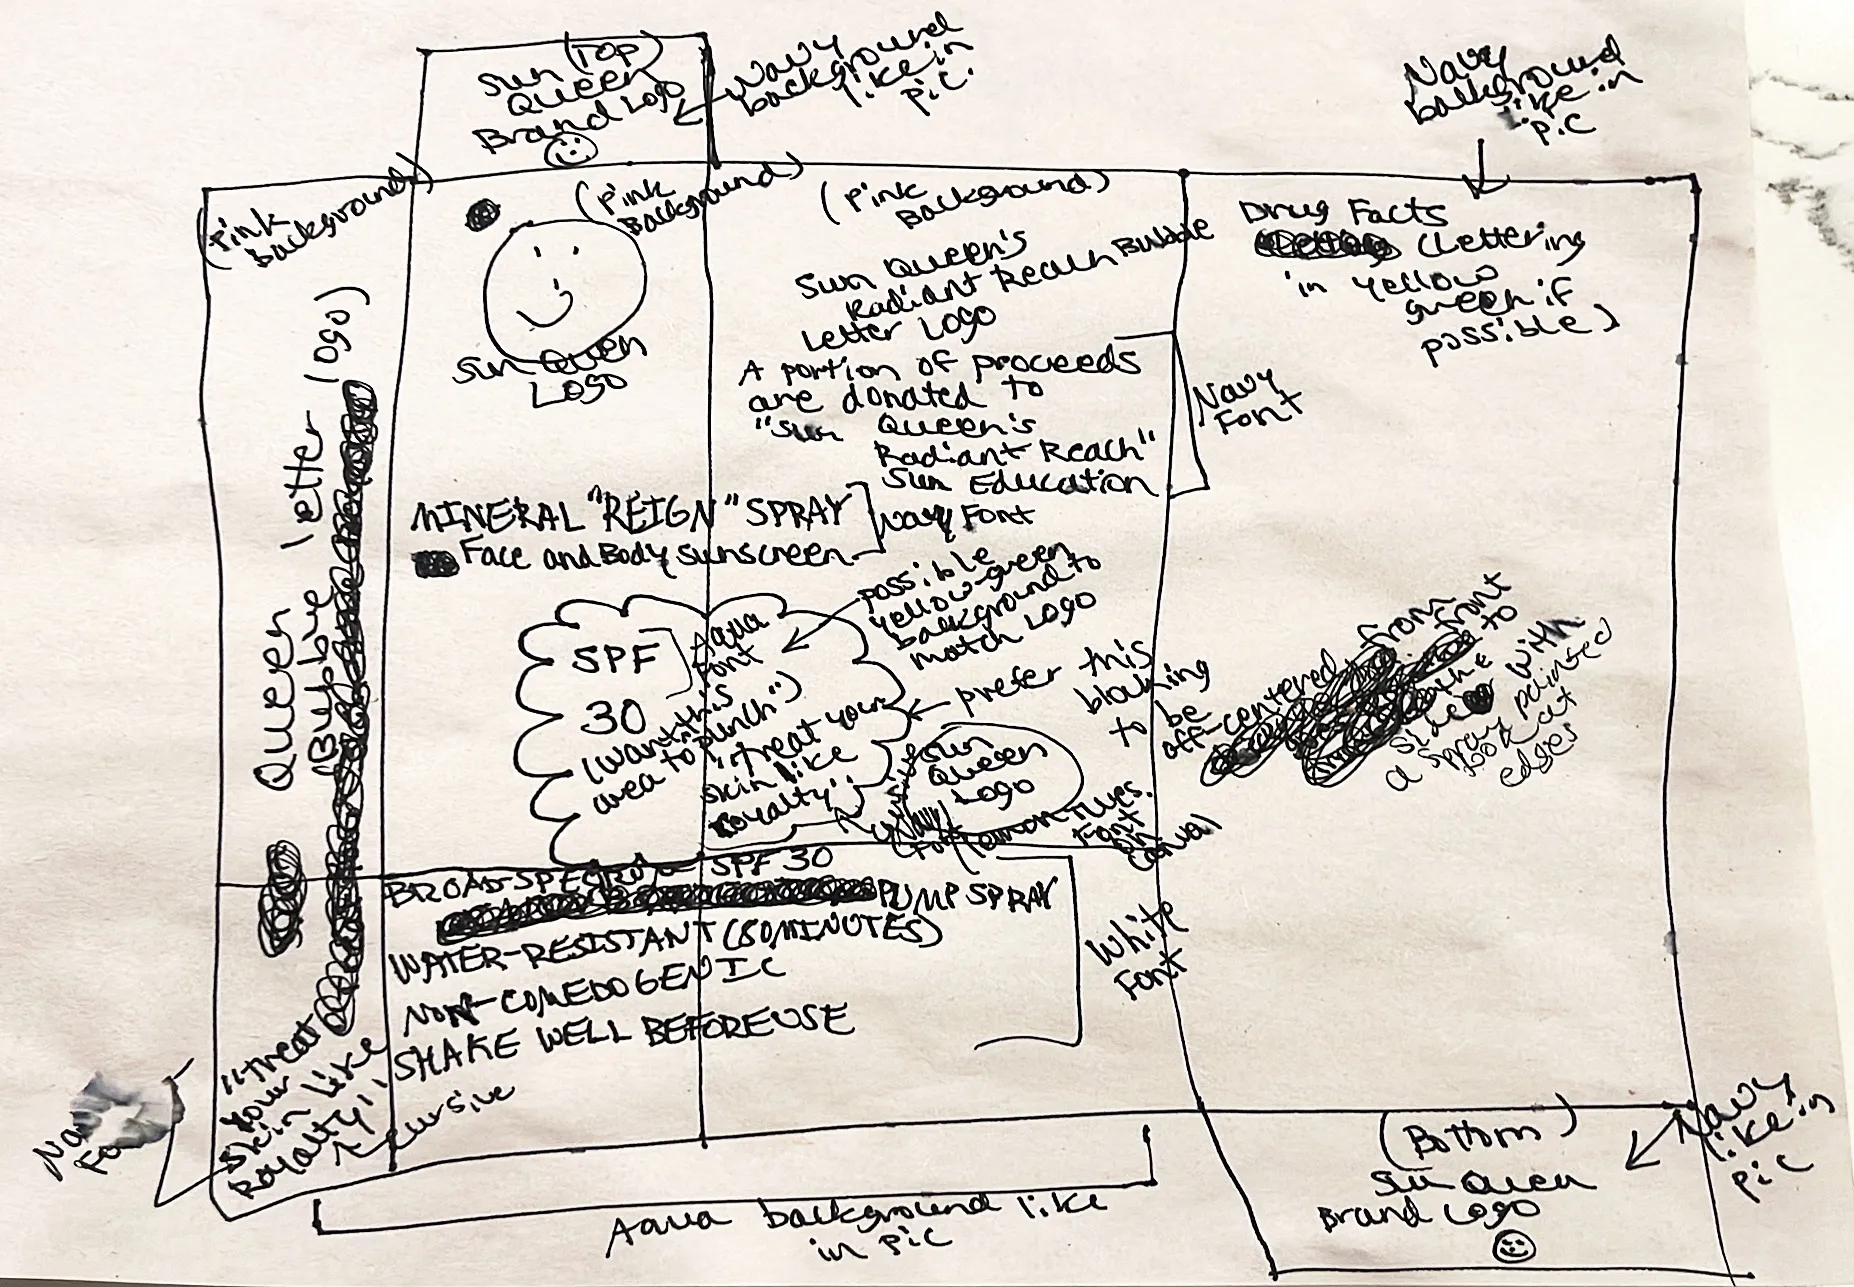 (TOP)
Sun
Queen
Brand Logo
Navy
background
like in
pic.
Navy
background
like in
pic
(Pink
background)
(Pink
Background)
(Pink
Background)
Sun Queen
Logo
Sun Queen's
Radiant Reach Bubble
Letter Logo
A portion of proceeds
are donated to
"Sun Queen's
Radiant Reach"
Sun Education
Navy
Font
Drug Facts
(Lettering
in yellow
green if
possible)
Queen letter logo)
(Bubble
MINERAL "REIGN" SPRAY
Face and Body sunscreen
Navy Font
possible
yellow-green
background to
match Logo
SPF
30
Aqua
Font
(want this
area to punch")
"treat your
skin like
royalty"
prefer this
blocking
to be
off-centered from
front
to
side with
a spray painted
look at
edges
Sun
Queen
Logo
(Navy
Font)
Font
on
oval
BROAD-SPECTRUM SPF 30
PUMP SPRAY
WATER-RESISTANT (80 MINUTES)
NON-COMEDOGENIC
SHAKE WELL BEFORE USE
White
Font
"treat
your
skin like
royalty"
cursive
Aqua background like
in pic
(Bottom)
Sun Queen
Brand Logo
Navy
like in
pic